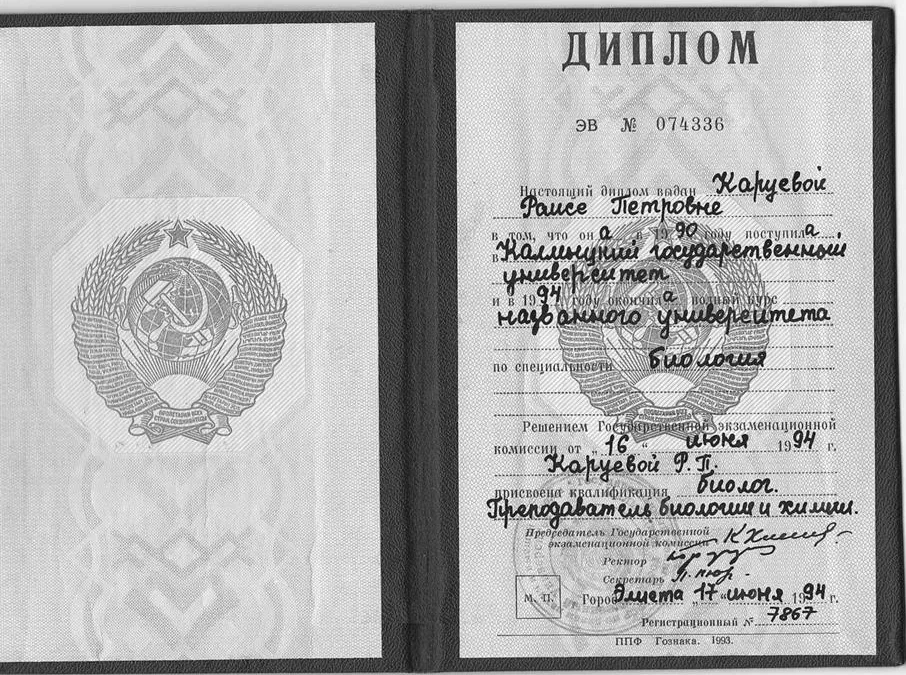 ДИПЛОМ
ЭВ № 074336
Настоящий диплом выдан Каруевой
Раисе Петровне
в том, что она в 1990 году поступила
в Калмыцкий государственный
университет
и в 1994 году окончила полный курс
названного университета
по специальности биология
Решением Государственной экзаменационной
комиссии от „16“ июня 1994 г.
Каруевой Р.П.
присвоена квалификация биолог.
Преподаватель биологии и химии.
Председатель Государственной
экзаменационной комиссии
Ректор
Секретарь
М. П. Город Элиста „17“ июня 1994 г.
Регистрационный № 7867
ППФ Гознака. 1993.